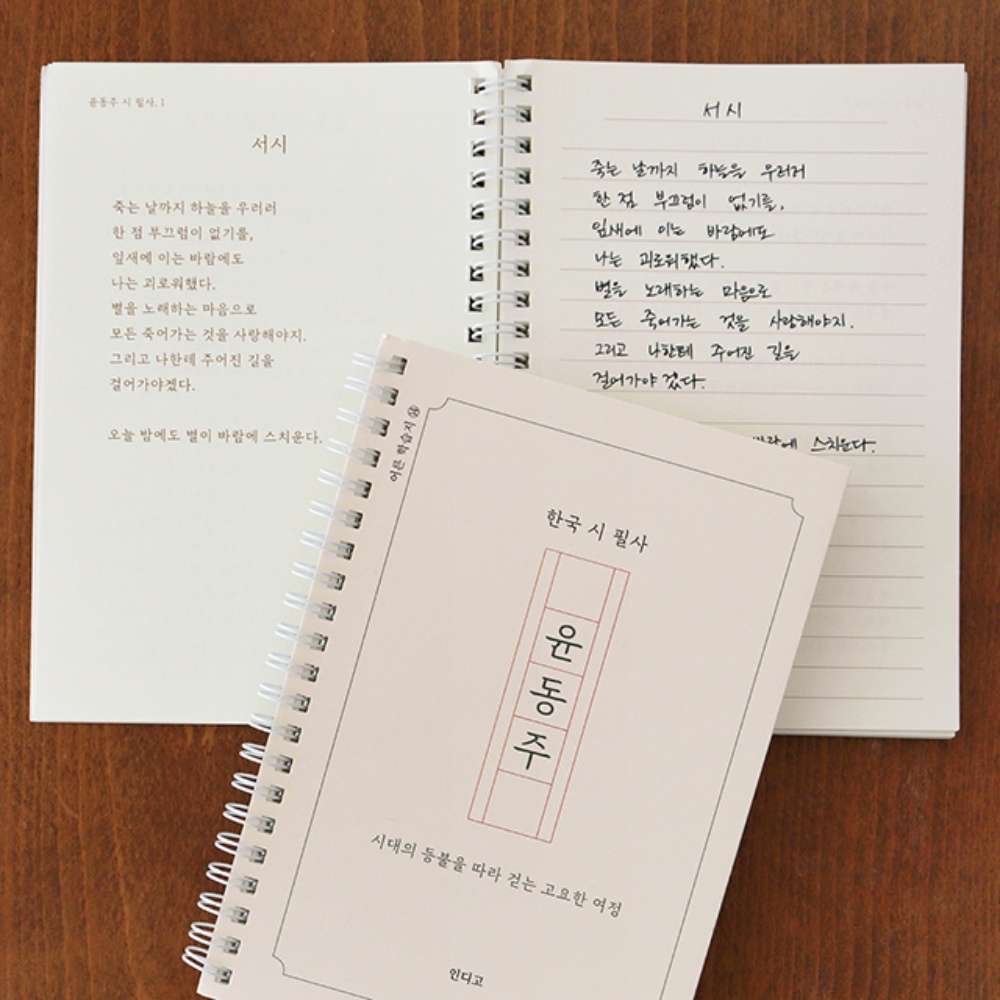 윤동주 시 필사. 1
서시
죽는 날까지 하늘을 우러러
한 점 부끄럼이 없기를,
잎새에 이는 바람에도
나는 괴로워했다.
별을 노래하는 마음으로
모든 죽어가는 것을 사랑해야지.
그리고 나한테 주어진 길을
걸어가야겠다.
오늘 밤에도 별이 바람에 스치운다.
서시
죽는 날까지 하늘을 우러러
한 점 부끄럼이 없기를,
잎새에 이는 바람에도
나는 괴로워했다.
별을 노래하는 마음으로
모든 죽어가는 것을 사랑해야지.
그리고 나한테 주어진 길을
걸어가야겠다.
바람에 스치운다.
어른 학습지
한국 시 필사
윤동주
시대의 등불을 따라 걷는 고요한 여정
인디고